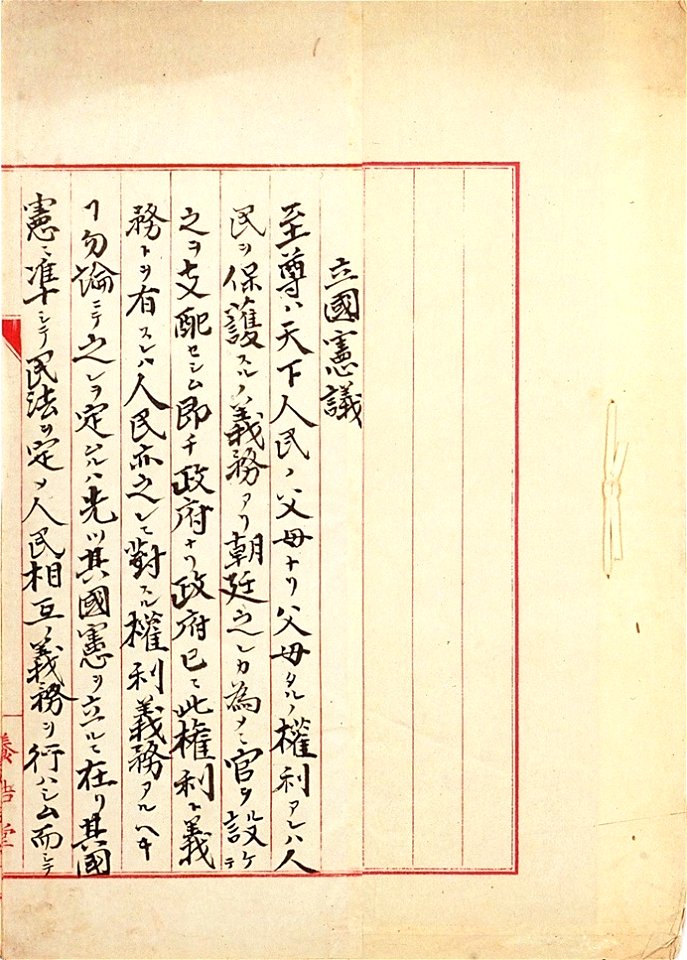 立國憲議
至尊ハ天下人民ノ父母ナリ父母タルノ權利アレハ人
民ヲ保護スルノ義務アリ朝廷之レカ為メニ官ヲ設ケテ
之ヲ支配セシム即チ政府ナリ政府已ニ此權利ト義
務トヲ有スレハ人民亦之レニ對スル權利義務アルヘキ
ヿ勿論ニテ之レヲ定ムルハ先ツ其國憲ヲ立ルニ在リ其國
憲ニ准十シテ民法ヲ定メ人民相互ノ義務ヲ行ハシム而シテ